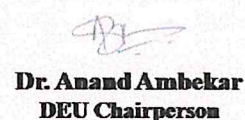 Dr. Anand Ambekar
DEU Chairperson